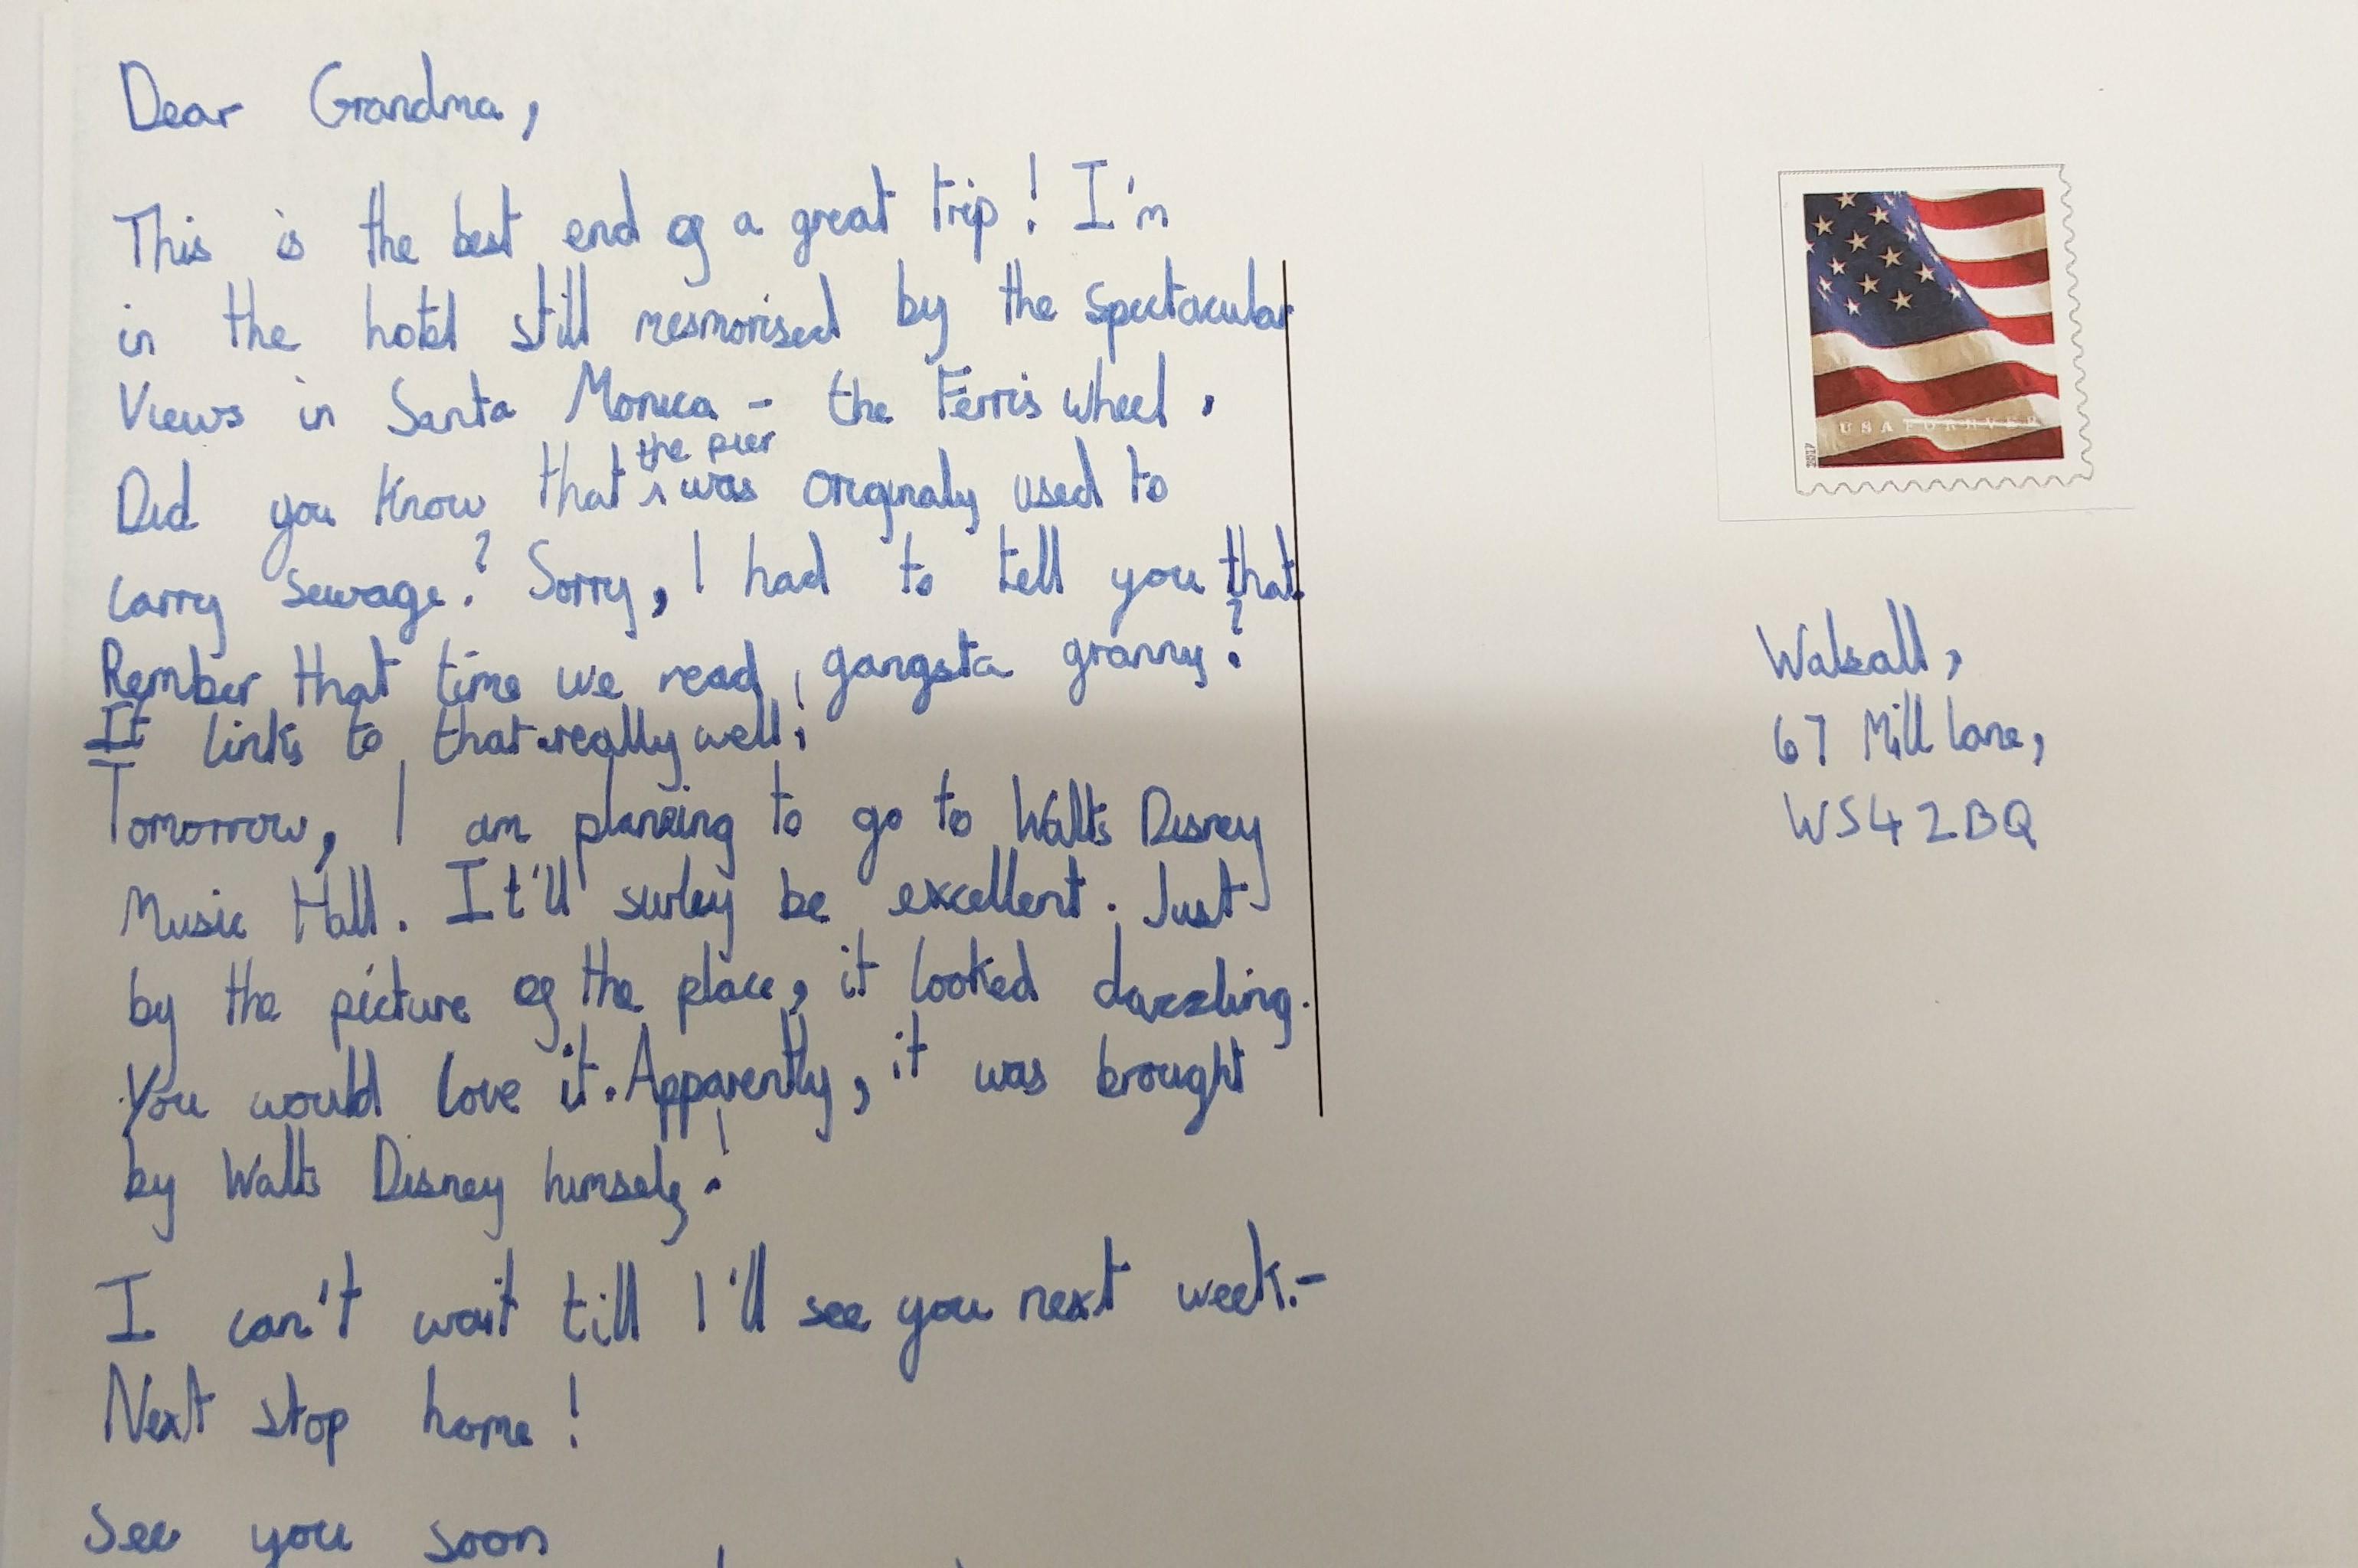 Dear Grandma,
This is the best end of a great trip! I'm
in the hotel still mesmorised by the spectacular
Views in Santa Monica - the Ferris wheel.
the pier
Did you know that ^ was originaly used to
carry sewage? Sorry, I had to tell you that.
Rember that time we read, gangsta granny?
It links to that really well!
Tomorrow, I am planning to go to Walts Disney
Music Hall. It'll surley be excellent. Just
by the picture of the place, it looked dazzling.
You would love it. Apparently, it was brought
by Walts Disney himself!
I can't wait till I'll see you next week.-
Next stop home!
See you soon
USA FOREVER
2017
Walsall,
67 Mill lane,
WS4 2BQ